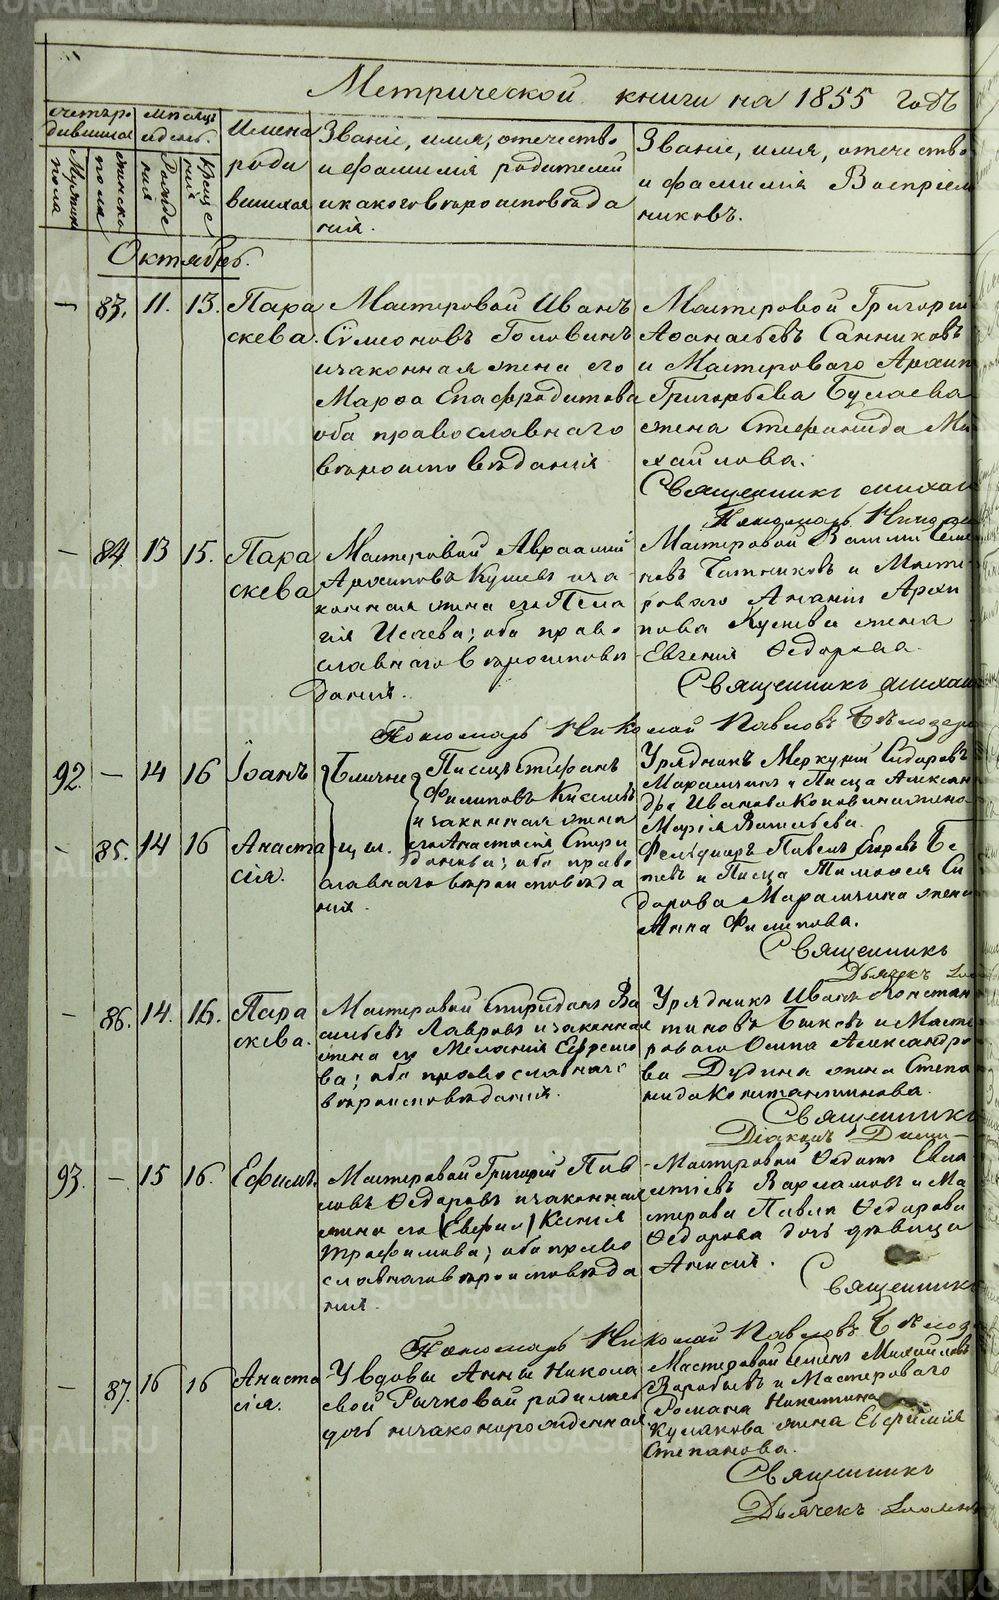 METRIKI.GASO-URAL.RU
Метрической книги на 1855 годъ
Счетъ ро дившихся
Мужеска пола
женска пола
Мѣсяцъ и день
Рожде нія
Креще нія
Имена роди вшихся
Званіе, имя, отечество
и фамилія родителей
и какого вѣроисповѣда
нія.
Званіе, имя, отечество
и фамилія Воспріем
никовъ.
Октябрь.
— 83. 11. 13. Пара
скева.
Мастеровой Иванъ
Сѵмеоновъ Головинъ
и законная жена его
Марѳа Епафродитова
оба православнаго
вѣроисповѣданія
Мастеровой Григорій
Аѳанасьевъ Санниковъ
и Мастероваго Архип
Григорьева Булаева
жена Стефанида Ми
хайлова.
Священникъ Михаи
Пономарь Никол
— 84. 13 15. Пара
скева
Мастеровой Авраамій
Архиповъ Кушевъ и за
конная жена его Пела
гія Исаева; оба право
славнаго вѣроисповѣ
данія.
Мастеровой Василій Семе
новъ и Масте
роваго Ананіи Архи
пова жена
Евгенія Ѳедорова.
Священникъ Михаи
Пономарь Николай Павловъ Бѣлозер
92. — 14 16 Іоаннъ
— 85. 14 16 Анаста
сія.
Близне
цы.
Писецъ Стефанъ
Филиповъ Киселевъ
и законная жена
его Анастасія Спири
донова; оба право
славнаго вѣроисповѣда
нія.
Урядникъ Меркурій Сидоровъ
и Писца Алексан
дра Иванова жена
Марія Васильева.
Фельдшеръ Павелъ Егоровъ Бе
и Писца Тимоѳея Си
дорова жена
Анна Филипова.
Священникъ
Дьячекъ
— 86. 14. 16. Пара
скева.
Мастеровой Спиридонъ Ва
сильевъ Лавровъ и законная
жена его Меланія Ефремо
ва; оба православнаго
вѣроисповѣданія.
Урядникъ Иванъ Констан
тиновъ Быковъ и Масте
роваго Осипа Александро
ва Дудина жена Степа
нида Константинова.
Священникъ
Діаконъ Дими
93. — 15 16. Ефимъ.
Мастеровой Григорій Пав
ловъ Ѳедоровъ и законная
жена его (Евфил) Ксенія
Трофимова; оба право
славнаго вѣроисповѣда
нія.
Мастеровой Ѳедотъ
Варламовъ и Ма
стерова Павла Ѳедорова
Ѳедорова дочь дѣвица
Анисія.
Священникъ
Пономарь Николай Павловъ Бѣлоз
— 87. 16 16 Анаста
сія.
У вдовы Анны Никола
евой Рычковой родилась
дочь незаконнорожденная
Мастеровой Семенъ Михайловъ
Воробьевъ и Мастероваго
Романа Никитина
Кулакова жена Евфимія
Степанова.
Священникъ
Дьячекъ